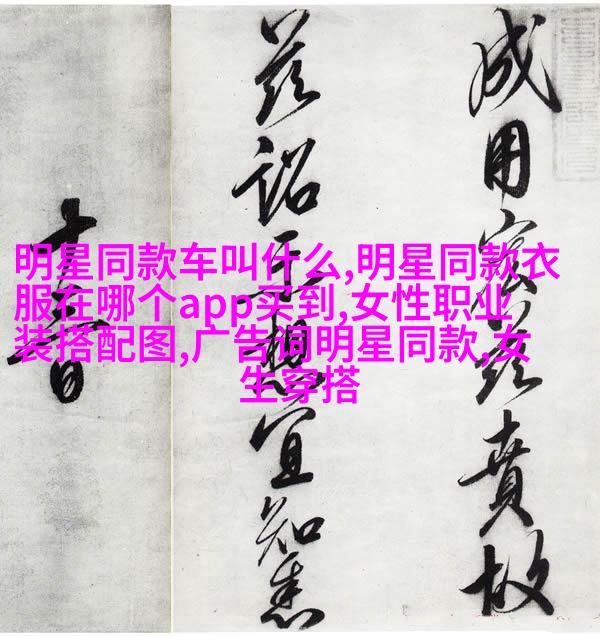 成用宏茲賁故
茲詔示想宜知悉
十六日
明星同款车叫什么,明星同款衣
服在哪个app买到,女性职业
装搭配图,广告词明星同款,女
生穿搭